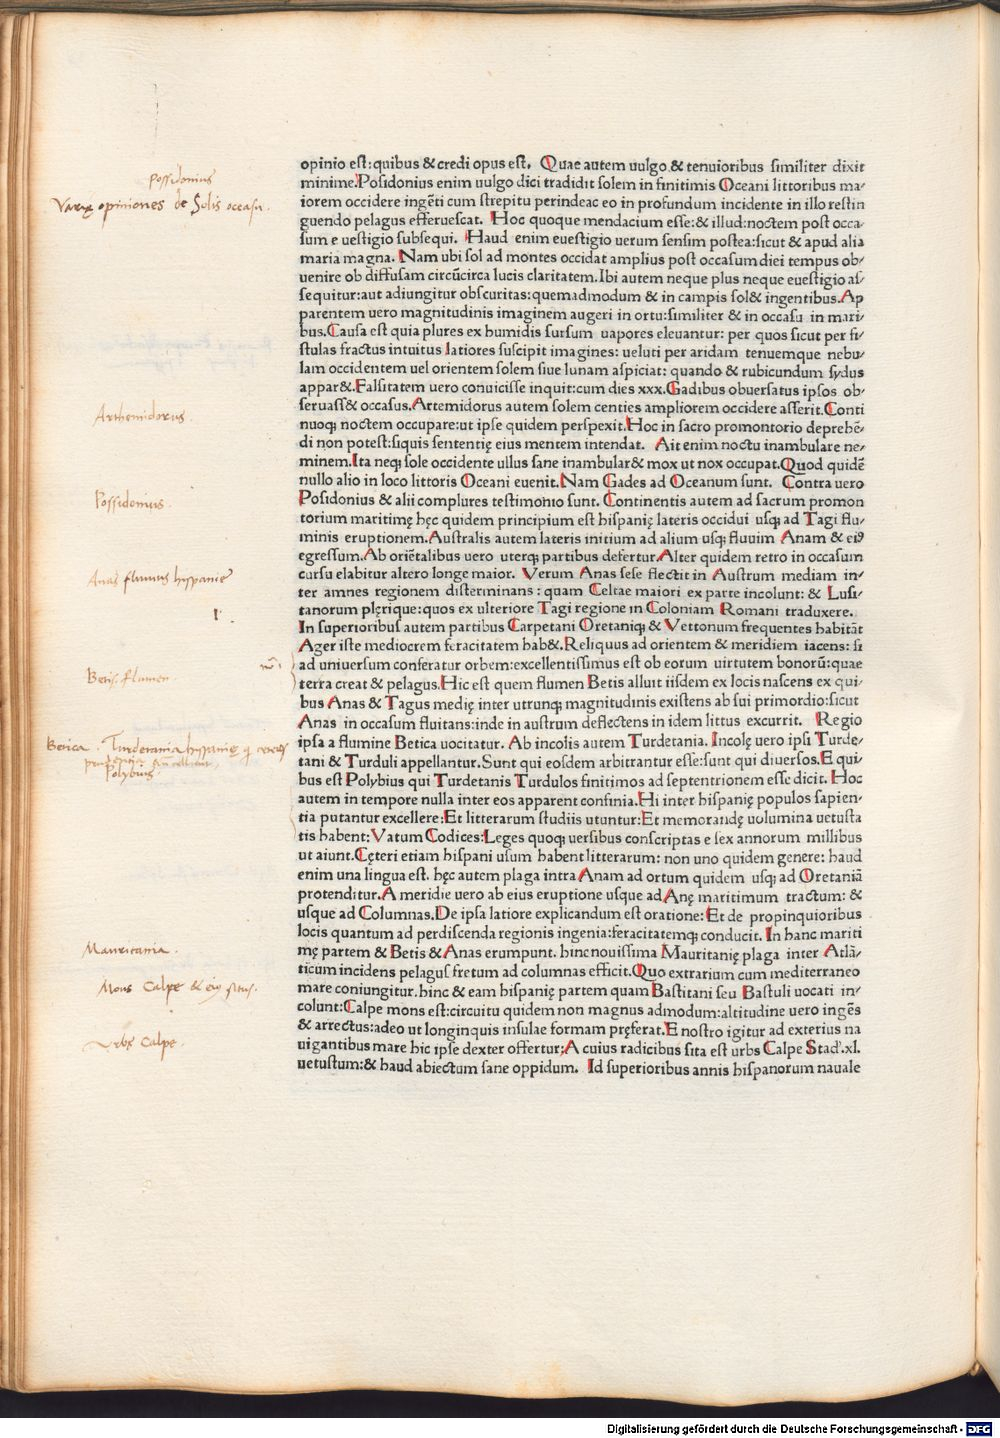 opinio est:quibus & credi opus est. Quae autem uulgo & tenuioribus similiter dixit
minime.Posidonius enim uulgo dici tradidit solem in finitimis Oceani littoribus ma/
iorem occidere ingēti cum strepitu perindeac eo in profundum incidente in illo restin
guendo pelagus efferuescat. Hoc quoque mendacium esse:& illud:noctem post occa/
sum e uestigio subsequi. Haud enim euestigio uerum sensim postea:sicut & apud alia
maria magna. Nam ubi sol ad montes occidat amplius post occasum diei tempus ob/
uenire ob diffusam circūcirca lucis claritatem.Ibi autem neque plus neque euestigio as/
sequitur:aut adiungitur obscuritas:quemadmodum & in campis sol& ingentibus.Ap
parentem uero magnitudinis imaginem augeri in ortu:similiter & in occasu in mari/
bus.Causa est quia plures ex humidis sursum uapores eleuantur: per quos sicut per fi/
stulas fractus intuitus latiores suscipit imagines: ueluti per aridam tenuemque nebu/
lam occidentem uel orientem solem siue lunam aspiciat: quando & rubicundum sydus
appar&.Falsitatem uero conuicisse inquit:cum dies xxx.Gadibus obuersatus ipsos ob/
seruass& occasus.Artemidorus autem solem centies ampliorem occidere asserit.Conti
nuoqȝ noctem occupare:ut ipse quidem perspexit.Hoc in sacro promontorio deprehē/
di non potest:siquis sententię eius mentem intendat. Ait enim noctu inambulare ne/
minem.Ita neqȝ sole occidente ullus sane inambular& mox ut nox occupat.Quod quidē
nullo alio in loco littoris Oceani euenit.Nam Gades ad Oceanum sunt. Contra uero
Posidonius & alii complures testimonio sunt. Continentis autem ad sacrum promon
torium maritimę hęc quidem principium est hispanię lateris occidui usqȝ ad Tagi flu/
minis eruptionem.Australis autem lateris initium ad alium usqȝ fluuim Anam & eiꝰ
egressum.Ab oriētalibus uero uterqȝ partibus defertur.Alter quidem retro in occasum
cursu elabitur altero longe maior. Verum Anas sese flectit in Austrum mediam in/
ter amnes regionem disterminans: quam Celtae maiori ex parte incolunt: & Lusi/
tanorum plęrique:quos ex ulteriore Tagi regione in Coloniam Romani traduxere.
In superioribus autem partibus Carpetani Oretaniqȝ & Vettonum frequentes habitāt
Ager iste mediocrem feracitatem hab&.Reliquus ad orientem & meridiem iacens: si
ad uniuersum conferatur orbem:excellentissimus est ob eorum uirtutem bonorū:quae
terra creat & pelagus.Hic est quem flumen Betis alluit iisdem ex locis nascens ex qui/
bus Anas & Tagus medię inter utrunqȝ magnitudinis existens ab sui primordio:sicut
Anas in occasum fluitans:inde in austrum deflectens in idem littus excurrit. Regio
ipsa a flumine Betica uocitatur. Ab incolis autem Turdetania. Incolę uero ipsi Turde/
tani & Turduli appellantur.Sunt qui eosdem arbitrantur esse:sunt qui diuersos.E qui/
bus est Polybius qui Turdetanis Turdulos finitimos ad septentrionem esse dicit. Hoc
autem in tempore nulla inter eos apparent confinia.Hi inter hispanię populos sapien/
tia putantur excellere:Et litterarum studiis utuntur:Et memorandę uolumina uetusta
tis habent:Vatum Codices:Leges quoqȝ uersibus conscriptas e sex annorum millibus
ut aiunt.Cęteri etiam hispani usum habent litterarum: non uno quidem genere: haud
enim una lingua est. hęc autem plaga intra Anam ad ortum quidem usqȝ ad Oretaniā
protenditur.A meridie uero ab eius eruptione usque ad Anę maritimum tractum: &
usque ad Columnas.De ipsa latiore explicandum est oratione:Et de propinquioribus
locis quantum ad perdiscenda regionis ingenia:feracitatemqȝ conducit. In hanc mariti
mę partem & Betis & Anas erumpunt. hinc nouissima Mauritanię plaga inter Atlā/
ticum incidens pelagus fretum ad columnas efficit.Quo extrarium cum mediterraneo
mare coniungitur.hinc & eam hispanię partem quam Bastitani seu Bastuli uocati in/
colunt:Calpe mons est:circuitu quidem non magnus admodum:altitudine uero ingēs
& arrectus:adeo ut longinquis insulae formam pręferat.E nostro igitur ad exterius na
uigantibus mare hic ipse dexter offertur:A cuius radicibus sita est urbs Calpe Stad'.xl.
uetustum:& haud abiectum sane oppidum. Id superioribus annis hispanorum nauale
Possidonius
Varię opiniones de Solis occasu.
Arthemidorus.
Possidonius.
Anas fluuius hyspanię
Betis. flumen.
Betica. Turdetania hyspanię
Polybius.
Mauritania.
Mons Calpe & eiꝰ situs.
Urbs Calpe.
Digitalisierung gefördert durch die Deutsche Forschungsgemeinschaft - DFG